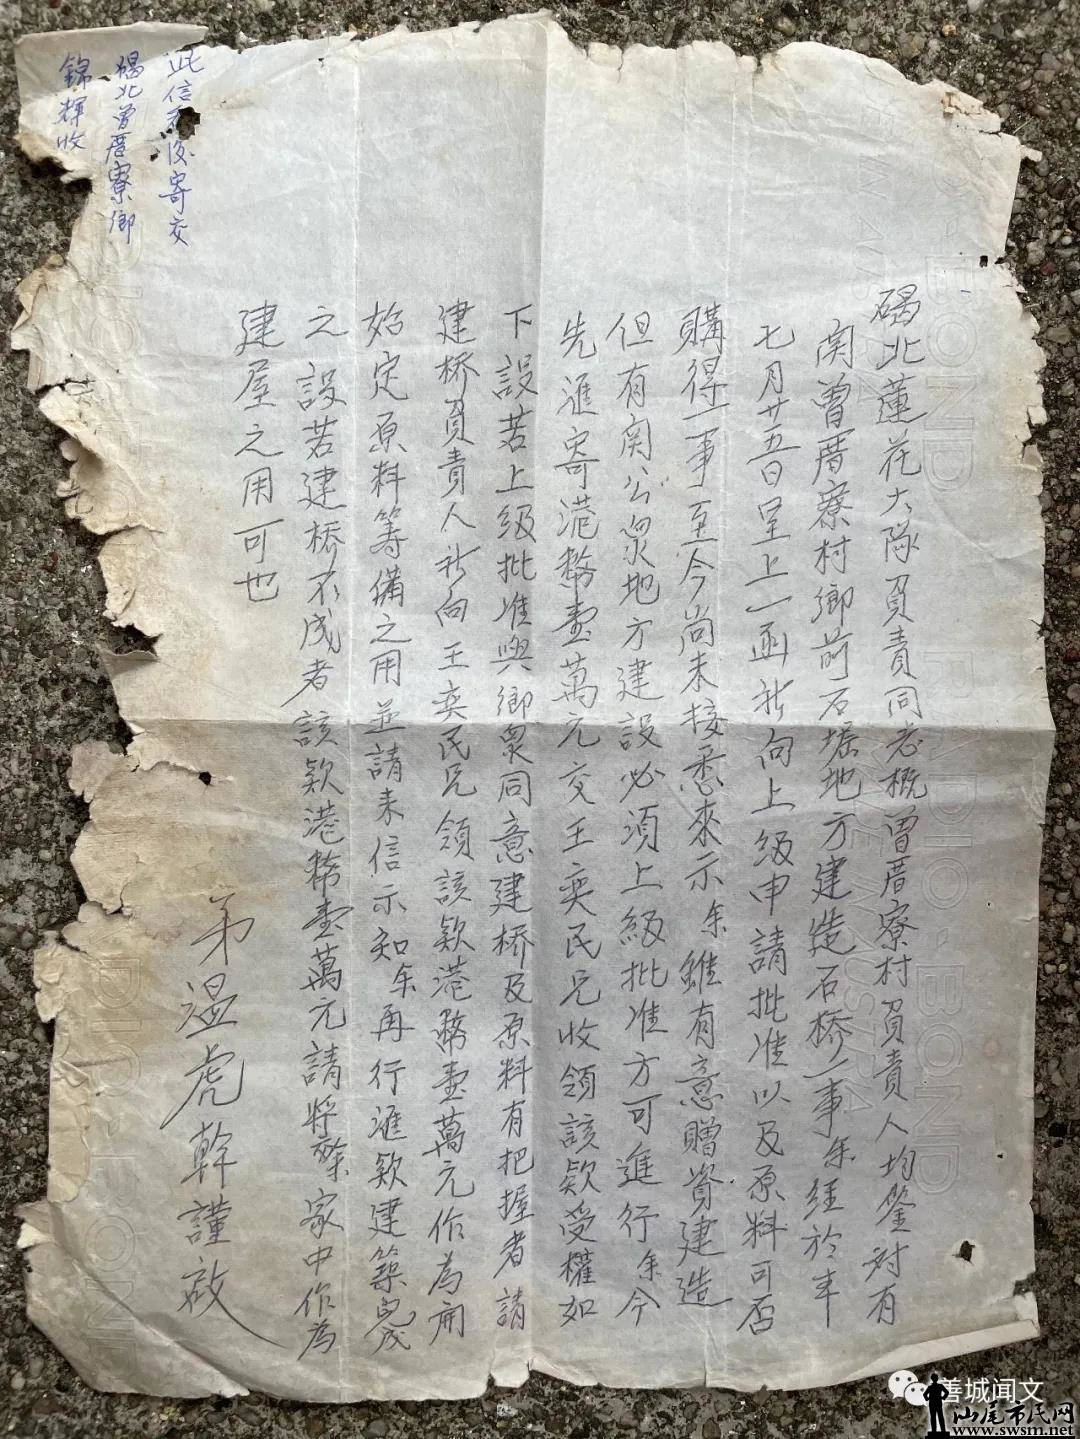 碣北蓮花大隊負責同志概曾厝寮村負責人均鑒对有
関曽厝寮村鄉前石堀地方建造石橋一事余經於本年
七月廿五日呈上一函祈向上級申請批准以及原料可否
購得一事至今尚未接悉來示余雖有意贈資建造
但有関公眾地方建設必須上級批准方可進行余今
先滙寄港幣壹萬元交王奕民兄收領該欵受權如
下設若上級批准與鄉眾同意建桥及原料有把握者請
建桥負責人祈向王奕民兄領該欵港幣壹萬元作為開
始定原料等備之用並請来信示知余再行滙欵建築完成
之設若建桥不成者該欵港幣壹萬元請將 家中作為
建屋之用可也
弟溫虎幹謹啟
此信看後寄交
碣北曾厝寮鄉
錦輝收
善城闻文
汕尾市民网
www.swsm.net
RADIO-BOND